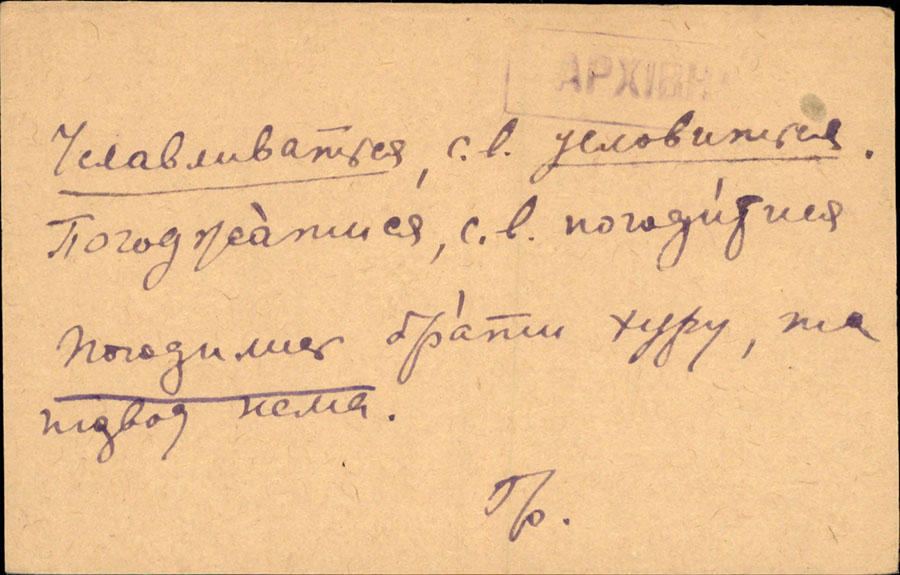 АРХІВН
Уславливаться, с.в. условиться.
Погоджа́тися, с.в. погоди́тися
Погодились бра́ти хуру, та
підвод нема.
Гр.